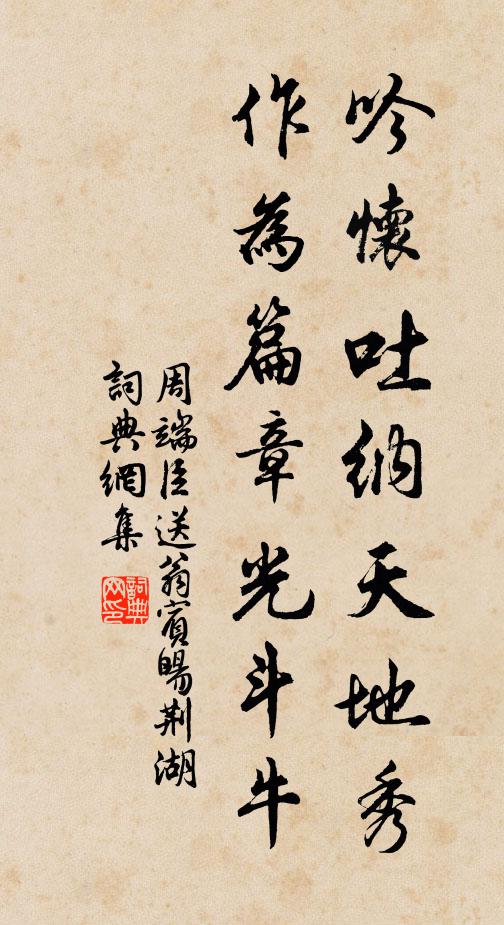 吟懷吐納天地秀
作為篇章光斗牛
周端臣送翁賓暘荆湖
詞典網集
詞典
网印